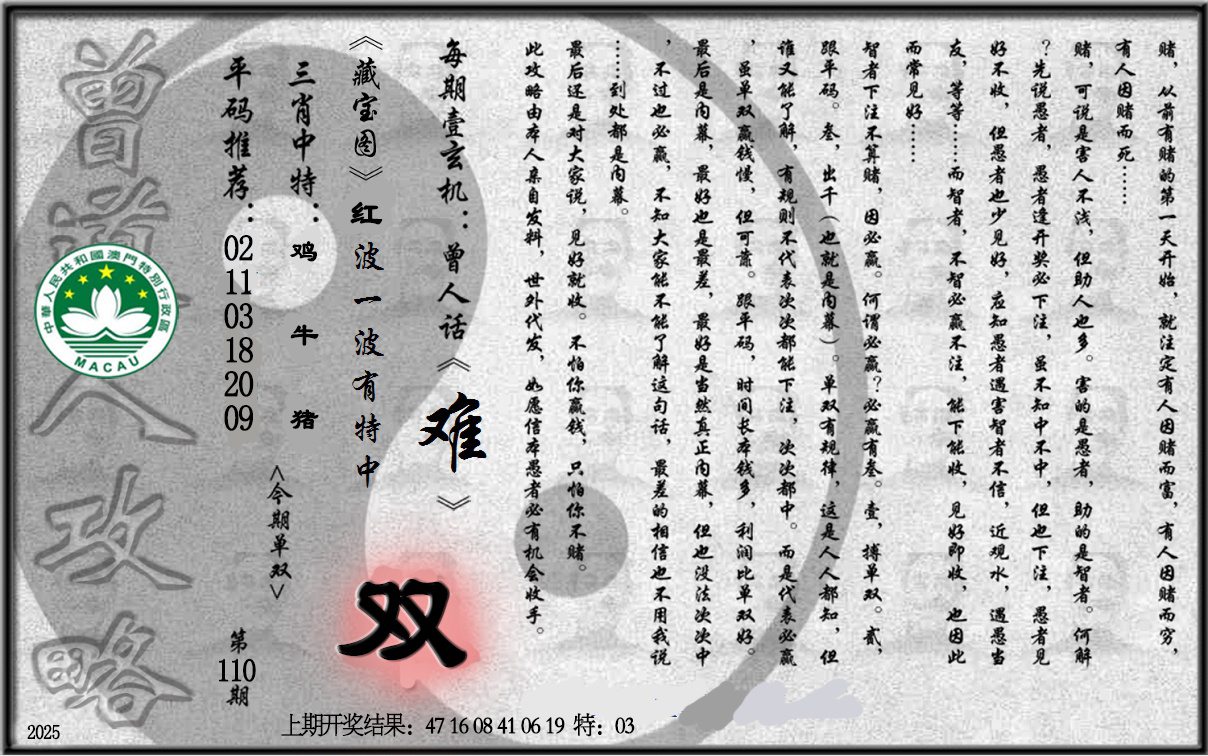 赌，从前有赌的第一天开始，就注定有人因赌而富，有人因赌而穷，
有人因赌而死……
赌，可说是害人不浅，但助人也多。害的是愚者，助的是智者。何解
？先说愚者，愚者逢开奖必下注，虽不知中不中，但也下注，愚者见
好不收，但愚者也少见好，应知愚者遇害智者不信，近观水，遇愚当
友，等等……而智者，不智必赢不注，能下能收，见好即收，也因此
而常见好……
智者下注不算赌，因必赢。何谓必赢？必赢有叁。壹，搏单双。贰，
跟平码。叁，出千（也就是内幕）。单双有规律，这是人人都知，但
谁又能了解，有规则不代表次次都能下注，次次都中。而是代表必赢
，虽单双赢钱慢，但可靠。跟平码，时间长本钱多，利润比单双好。
最后是内幕，最好也是最差，最好是当然真正内幕，但也没法次次中
，不过也必赢，不知大家能不能了解这句话，最差的相信也不用我说
……到处都是内幕。
最后还是对大家说，见好就收。不怕你赢钱，只怕你不赌。
此攻略由本人亲自发料，世外代发，如愿信本愚者必有机会收手。
每期壹玄机：曾人话《难》
《藏宝图》红波一波有特中
双
三肖中特：鸡牛猪
<今期单双>
平码推荐：02 11 03 18 20 09
第110期
曾道人攻略
中華人民共和國澳門特別行政區
MACAU
2025
上期开奖结果：47 16 08 41 06 19 特：03